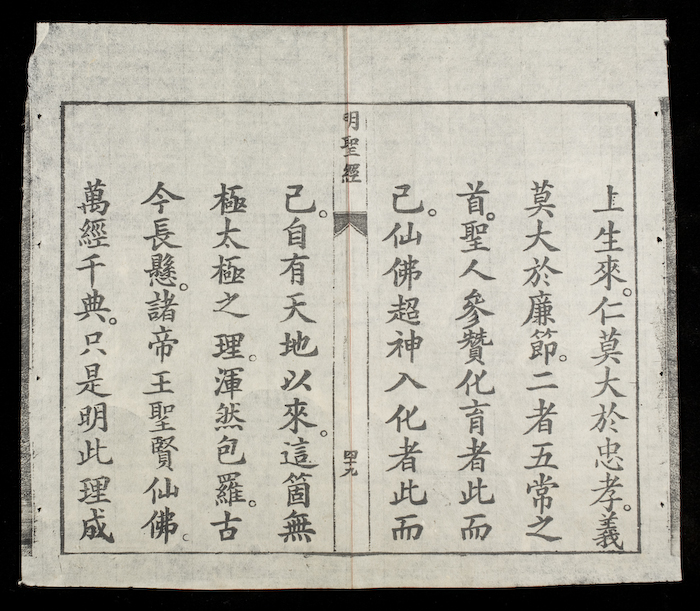 上生來。仁莫大於忠孝。義
莫大於廉節。二者五常之
首。聖人參贊化育者此而
已。仙佛超神入化者此而
明聖經
四十九
已。自有天地以來。這箇無
極太極之理。渾然包羅。古
今長懸。諸帝王聖賢仙佛。
萬經千典。只是明此理成